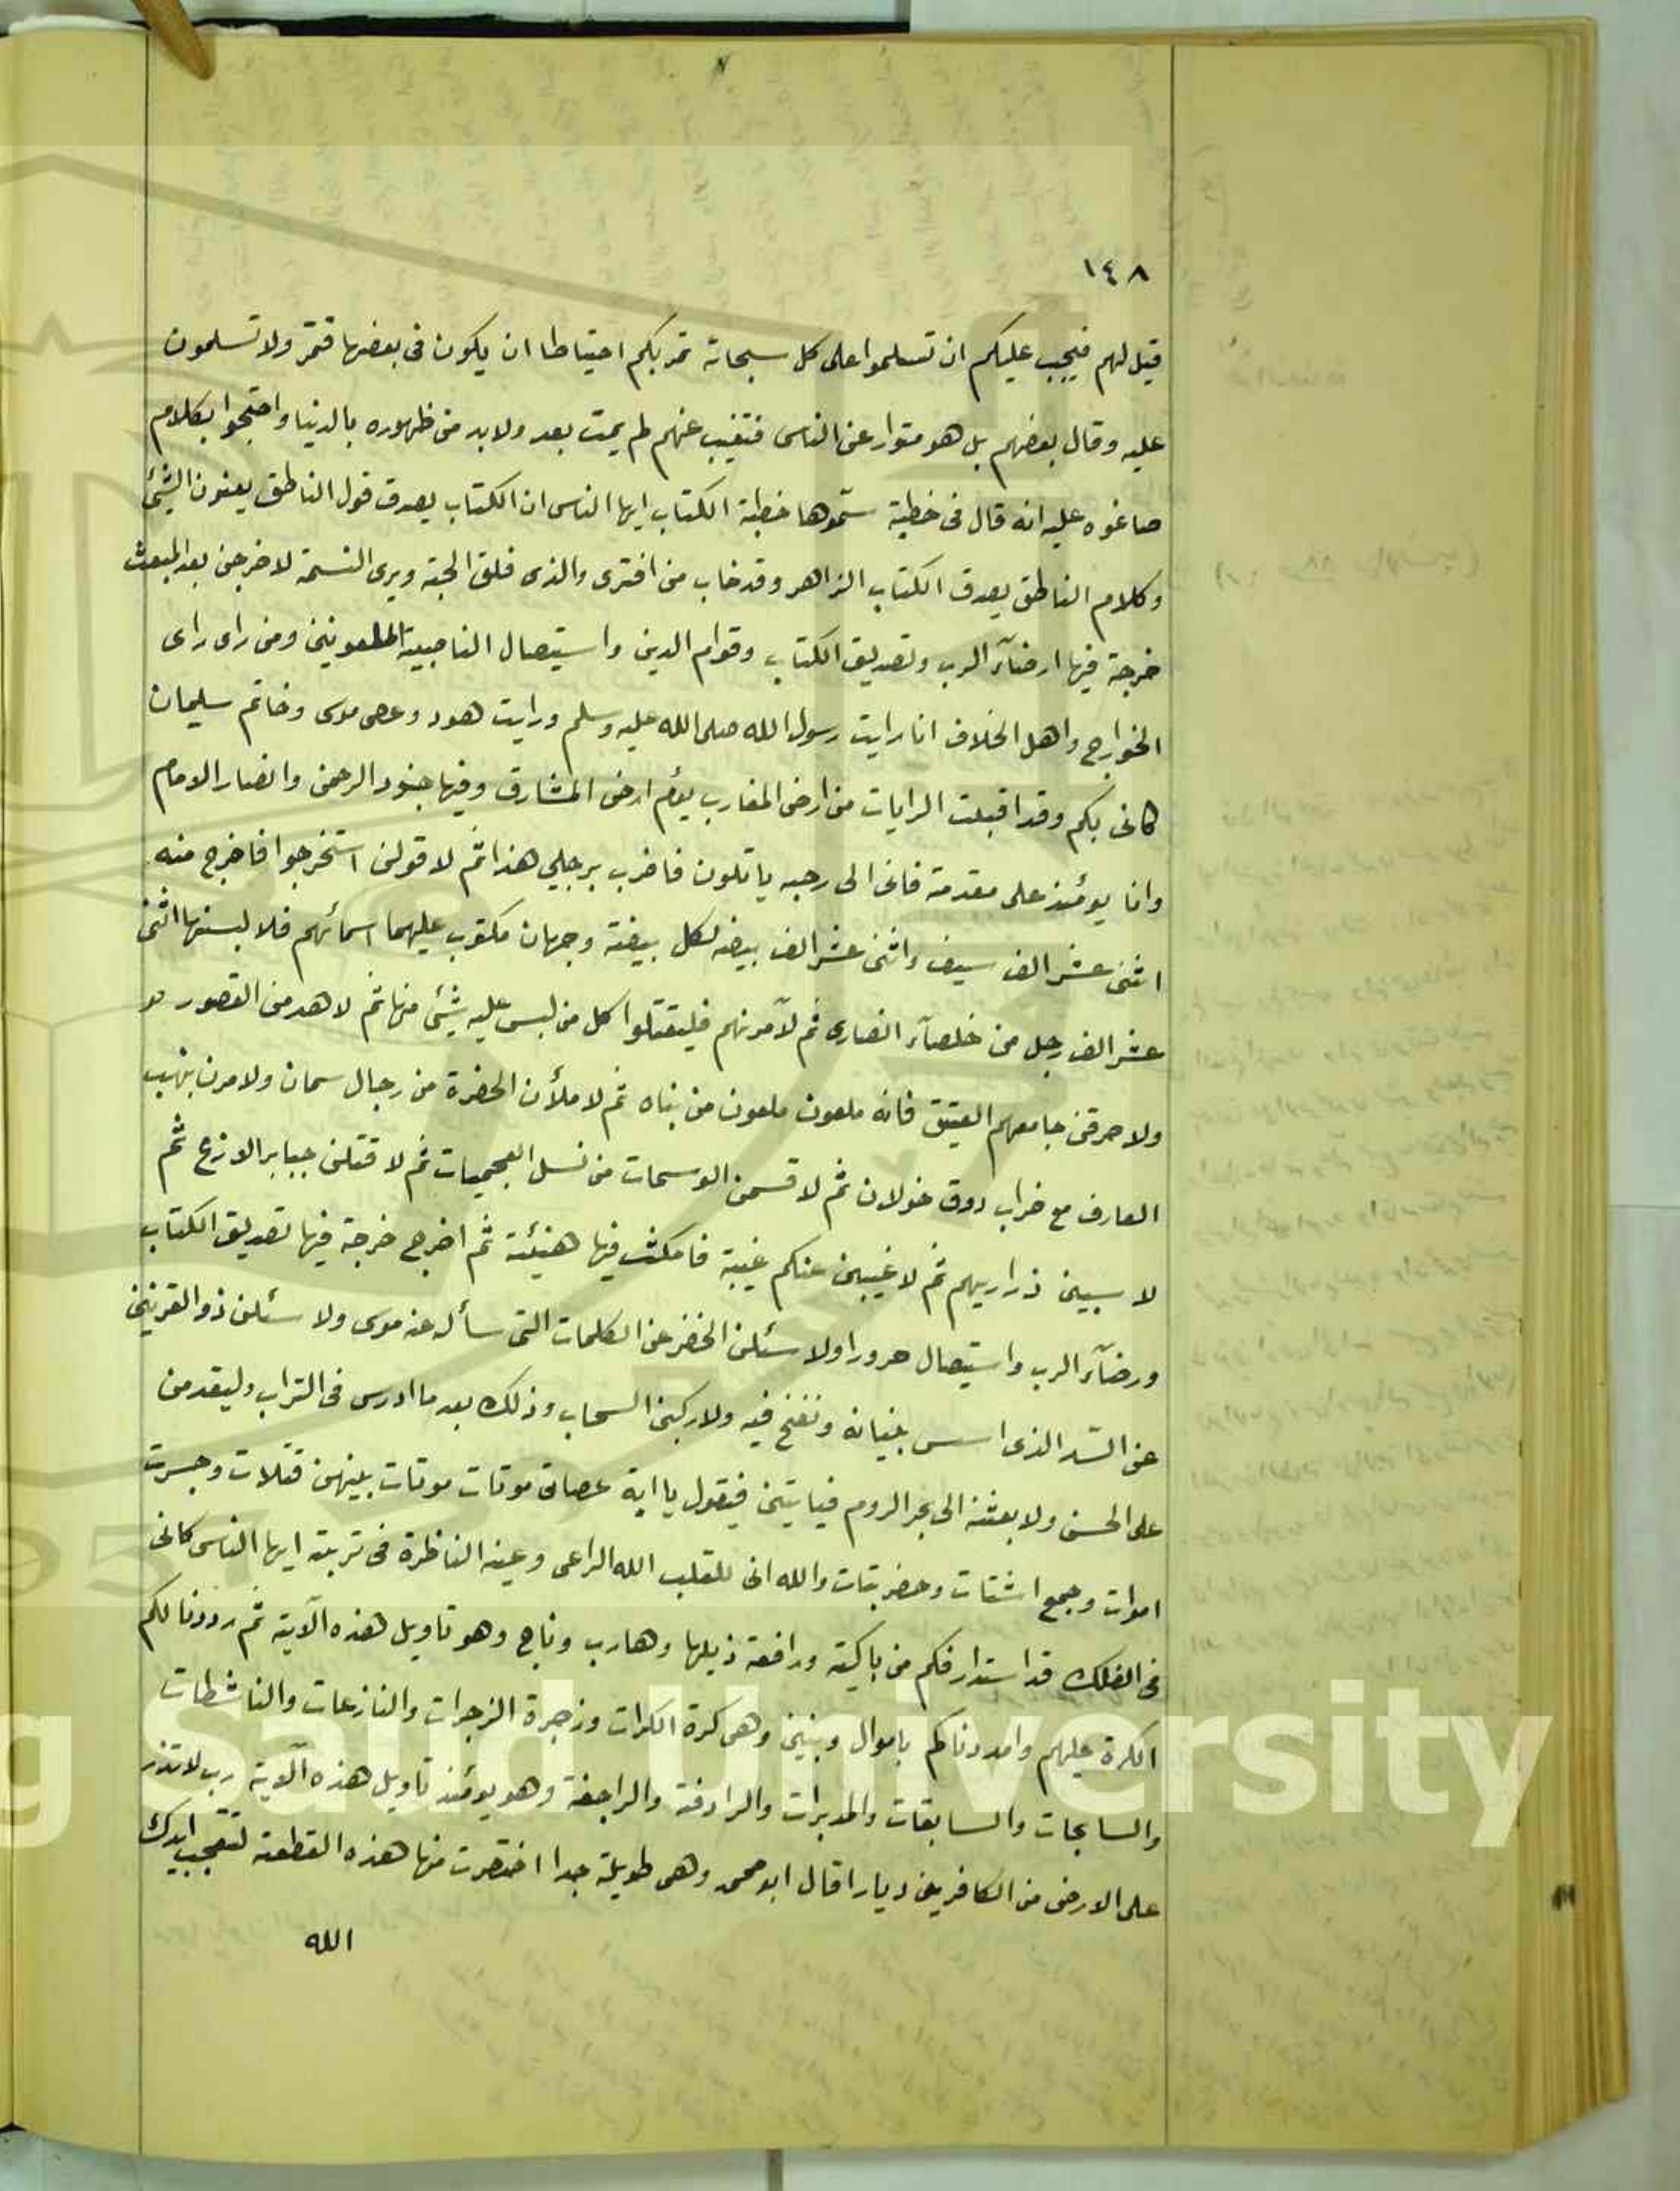 ١٤٨
قيل لهم فيجب عليكم ان تسلموا على كل سحابة تمر بكم احتياطا ان يكون فى بعضها فتمر ولا تسلمون
عليه وقال بعضهم بل هو متوار عن الناس فتغيب عنهم لم يمت بعد ولا بد من ظهوره بالدنيا واحتجوا بكلام
صاغوه عليه انه قال فى خطبة سمّوها خطبة الكتاب ايها الناس ان الكتاب يصدق قول الناطق يعنون الشئ
وكلام الناطق يصدق الكتاب الزاهر وقد خاب من افترى والذى فلق الحبة وبرى النسمة لاخرجن بعد المبعث
خرجة فيها ارضآء الرب وتصديق الكتاب وقوام الدين واستيصال الناصبية الملعونين ومن راى راى
الخوارج واهل الخلاف انا رايت رسول الله صلى الله عليه وسلم ورايت هود وعصى موسى وخاتم سليمان
كانى بكم وقد اقبلت الرايات من ارض المغارب يؤم ارض المشارق وفيها جنود الرحمن وانصار الامام
وانا يومئذ على مقدمة فانى الى رحبه ياتلون فاضرب برجلى هذا ثم لاقولن استخرجوا فاخرج منه
اثنى عشر الف سيف واثنى عشر الف بيضه لكل بيضة وجهان مكتوب عليهما اسمائهم فلالبسنها اثنى
عشر الف رجل من خلصآء انصارى ثم لآمرنهم فليقتلوا كل من ليس عليه شئ منها ثم لاهدمن القصور
ولاحرقن جامعهم العتيق فانه ملعون ملعون من بناه ثم لاملأن الحضرة من رجال سمان ولامرن بنهب
العارف مع خراب دوق خولان ثم لاقسمن الوسمات من نسل العجميات ثم لاقتلن جبابر الاوزع ثم
لاسبين ذراريهم ثم لاغيبن عنكم غيبة فامكث فيها هنيئة ثم اخرج خرجة فيها تصديق الكتاب
ورضآء الرب واستيصال حرورا ولاسئلن الخضر عن الكلمات التى سأله عنه موسى ولاسئلن ذو القرنين
عن السّد الذى اسس بنيانه ونفخ فيه ولاركبن السحاب وذلك بعد ما ادرس فى التراب وليقدمن
على الحسن ولابعثنه الى بحر الروم فياتين فيقول يا اية عصاتى موتات موتات بينهن قتلات وحسرت
اموات وجمع اشتات وحضر بتات والله انى للقلب الله الراعى وعينه الناظرة فى تربته ايها الناس كانى
فى الفلك قد استدار فكم من باكية ورافعة ذيلها وهارب وناج وهو تاويل هذه الآية ثم رددنا لكم
الكرة عليهم وامددناكم باموال وبنين وهى كرة الكرات وزجرة الزجرات والنازعات والناشطات
والسابحات والسابقات والمدبرات والرادفة والراجفة وهو يومئذ تاويل هذه الآية رب لا تذر
على الارض من الكافرين ديارا قال ابو محمد وهى طويلة جدا اختصرت منها هذه القطعة لتتعجب ايدك
الله
King Saud University